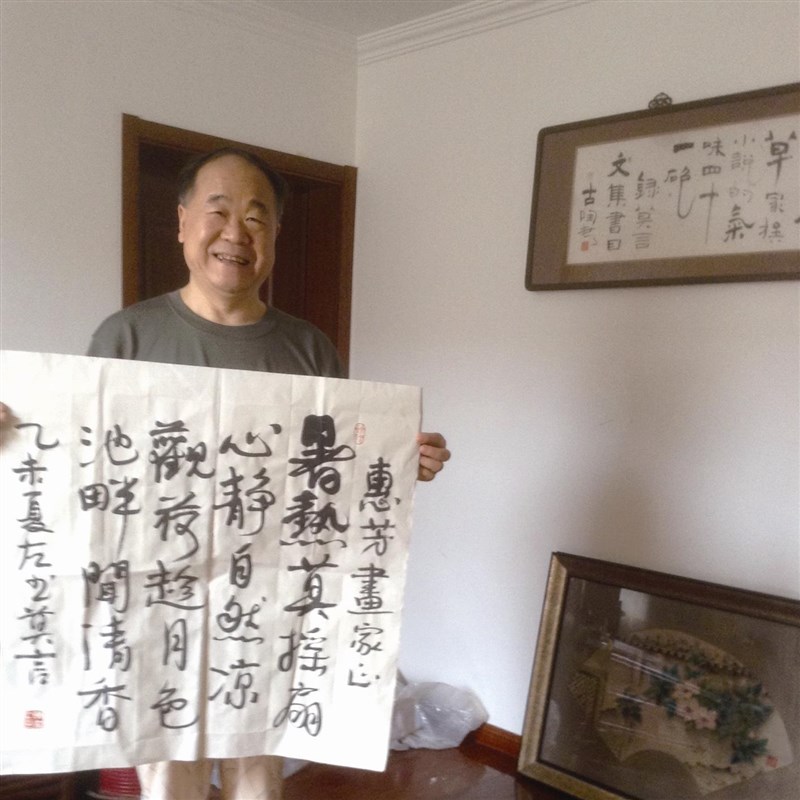 惠芳畫家正
暑熱莫搖扇
心静自然凉
觀荷趁月色
池畔聞清香
乙未夏左书莫言
草家族
小說的氣
味四十
一砲
錄莫言
文集書目
古陶